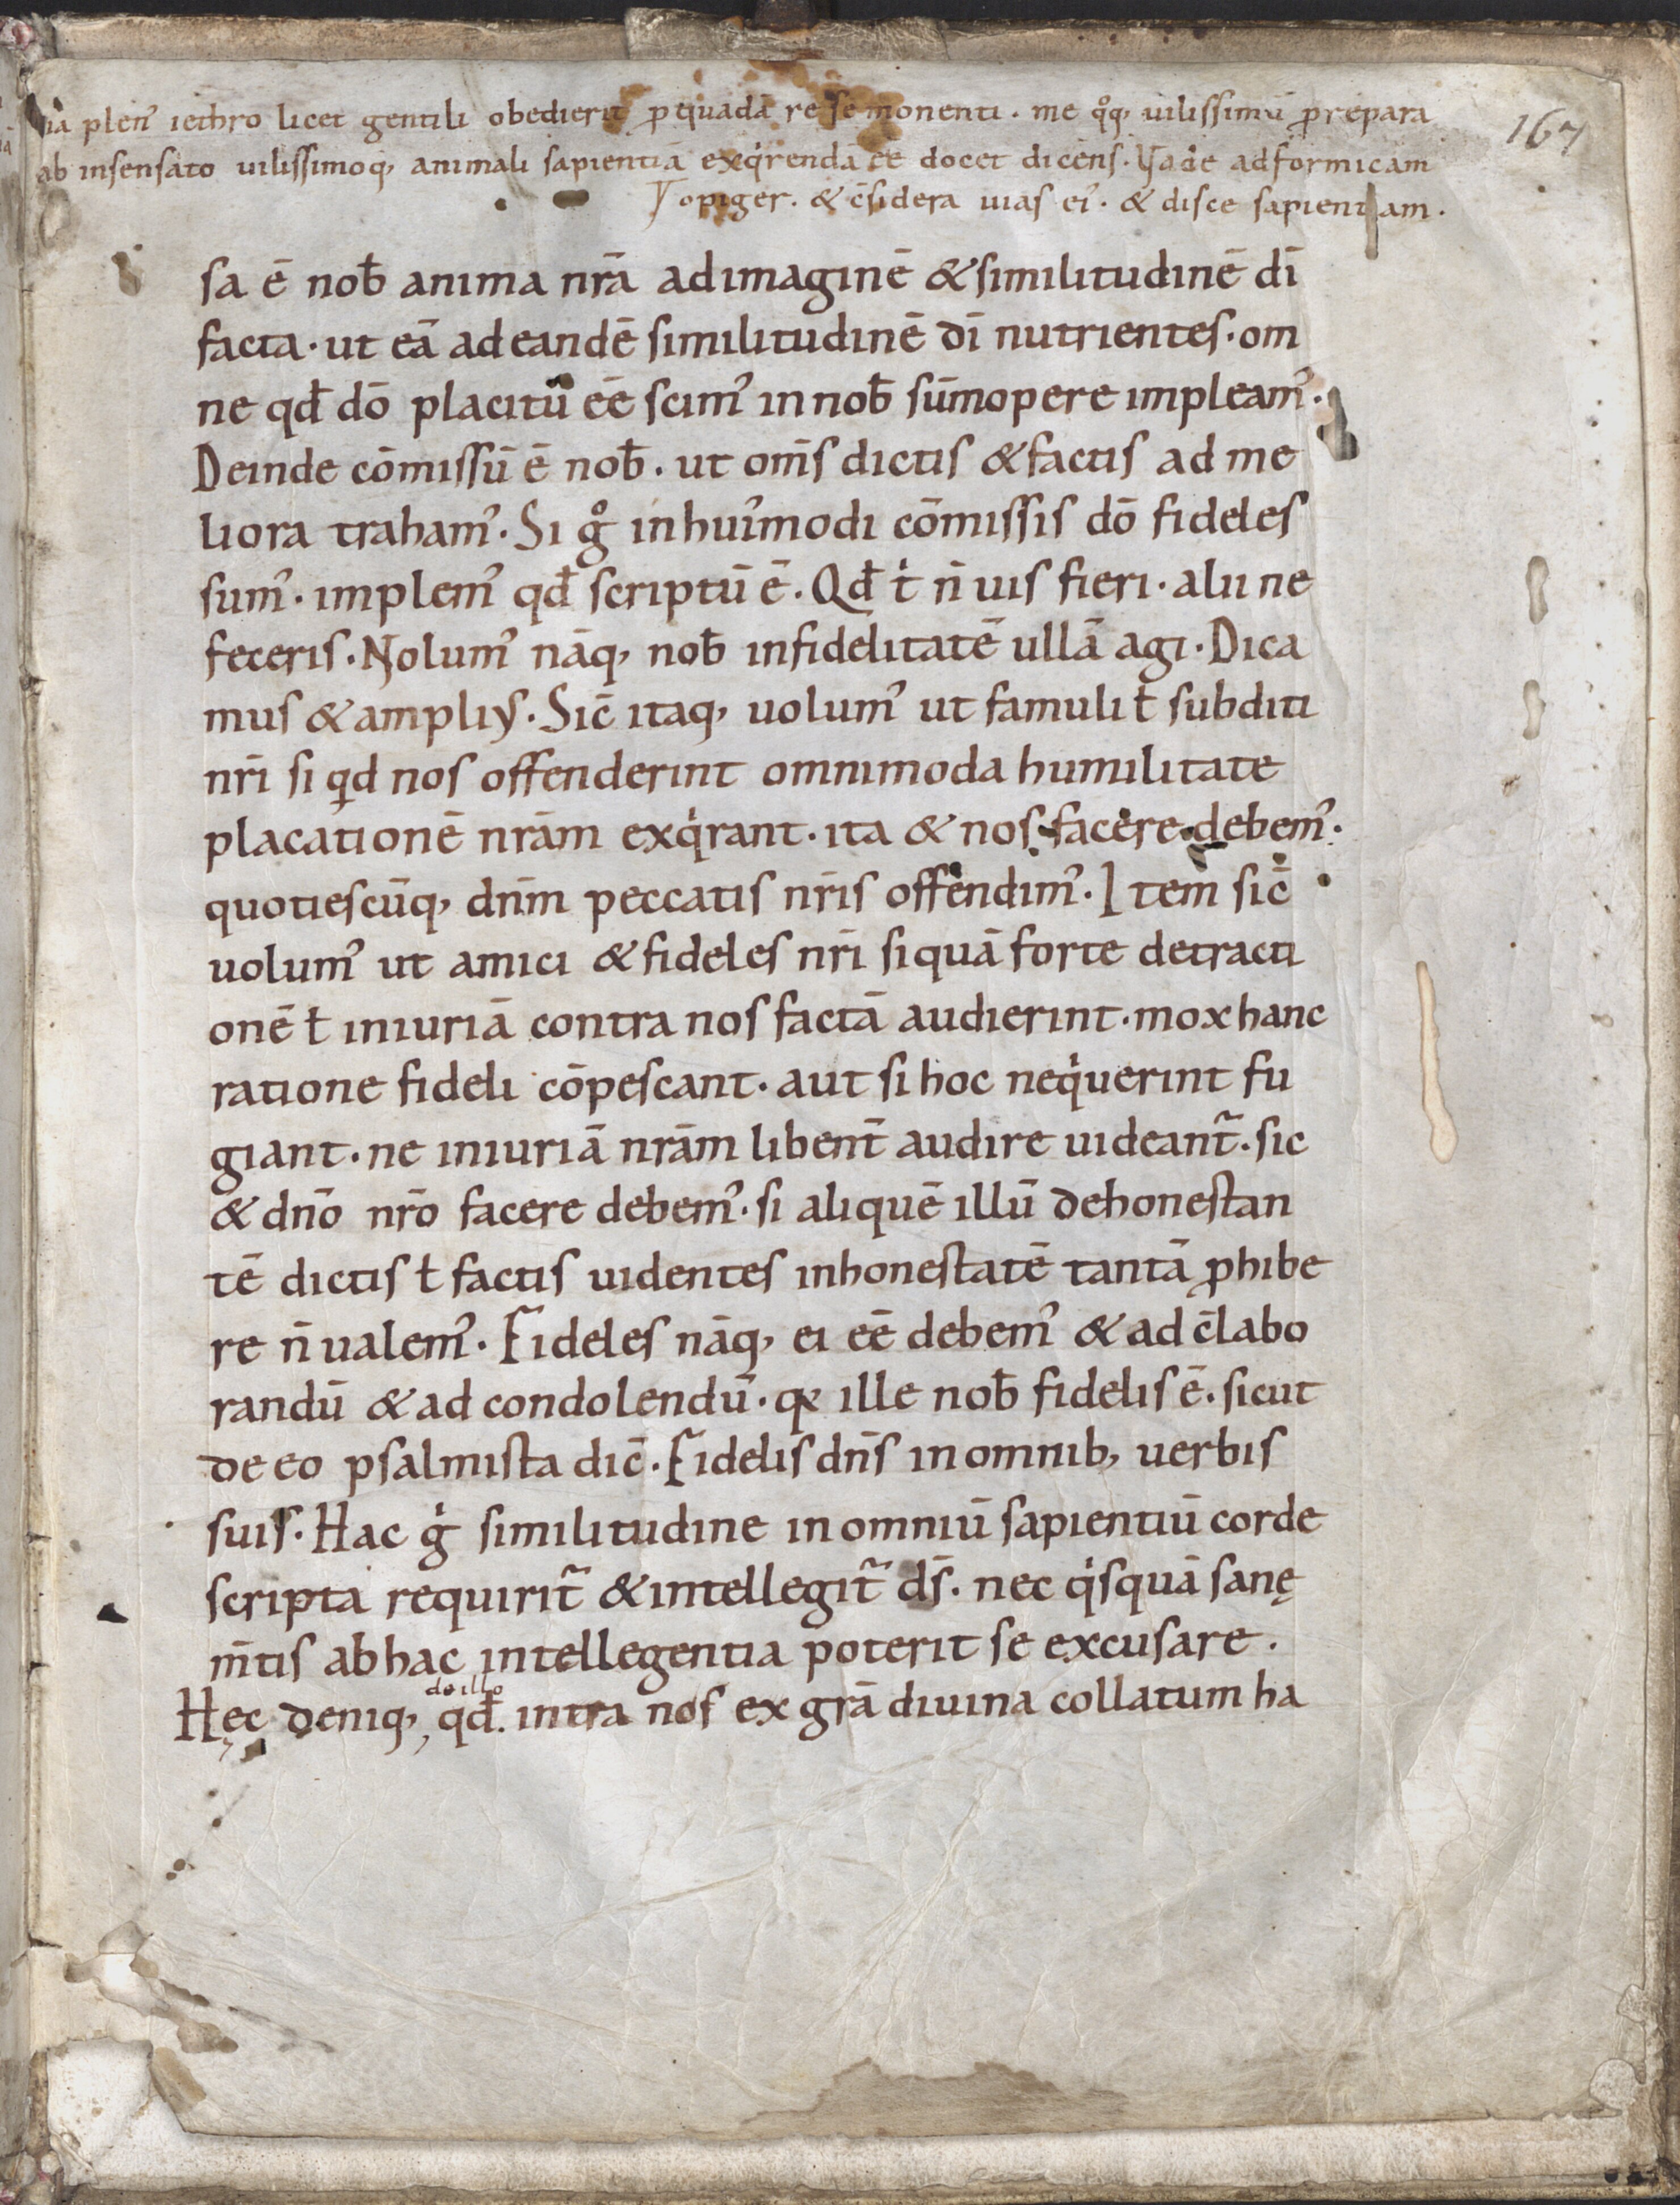 ia plen᾽ iethro licet gentili obedierit ꝓ quadā re se monenti. me qͦq, uilissimū p̄repara
167
ab insensato uilissimoq, animali sapientiā exqͥrendā eē docet dicens. Uade ad formicam
o piger. & c̄sidera uias ei᾽. & disce sapientiam.
sa ē nob̄ anima nr̄a ad imaginē & similitudinē dī
facta · ut eā ad eandē similitudinē dī nutrientes · om
ne qd̄ dō placitū eē scim᾽ in nob̄ sūmopere impleam᾽.
Deinde cōmissū ē nob̄. ut om̄s dictis & factis ad me
liora traham᾽. Si gͦ in hui᾽modi cōmissis dō fideles
sum᾽. implem᾽ qd̄ scriptū ē. Qd̄ tͥ n̄ uis fieri · alii ne
feceris. Nolum᾽ nāq, nob̄ infidelitatē ullā agi. Dica
mus & ampliꝰ. Sic̄ itaq, uolum᾽ ut famuli ł subditi
nr̄i si qͥd nos offenderint omnimoda humilitate
placationē nr̄am exqͥrant · ita & nos facere debem᾽.
quotiescūq, dn̄m peccatis nr̄is offendim᾽. Item sic̄
uolum᾽ ut amici & fideles nr̄i si quā forte detracti
onē ł iniuriā contra nos factā audierint · mox hanc
ratione fideli cōpescant · aut si hoc neqͥuerint fu
giant · ne iniuriā nr̄am libent̄ audire uideant᷑. sic
& dn̄o nr̄o facere debem᾽. si aliquē illū dehonestan
tē dictis ł factis uidentes inhonestatē tantā ꝓhibe
re n̄ ualem᾽. Fideles nāq, ei eē debem᾽ & ad c̄labo
randū & ad condolendū · qꝛ ille nob̄ fidelis ē. sicut
de eo psalmista dic̄. Fidelis dn̄s in omnib, uerbis
suis. Hac gͥ similitudine in omniū sapientiū corde
scripta requirit᷑ & intellegit᷑ ds̄. nec qͥsquā sanę
m̄tis ab hac intellegentia poterit se excusare.
de illo
Hęc deniq, qd̄. intra nos ex gr̄a diuina collatum ha